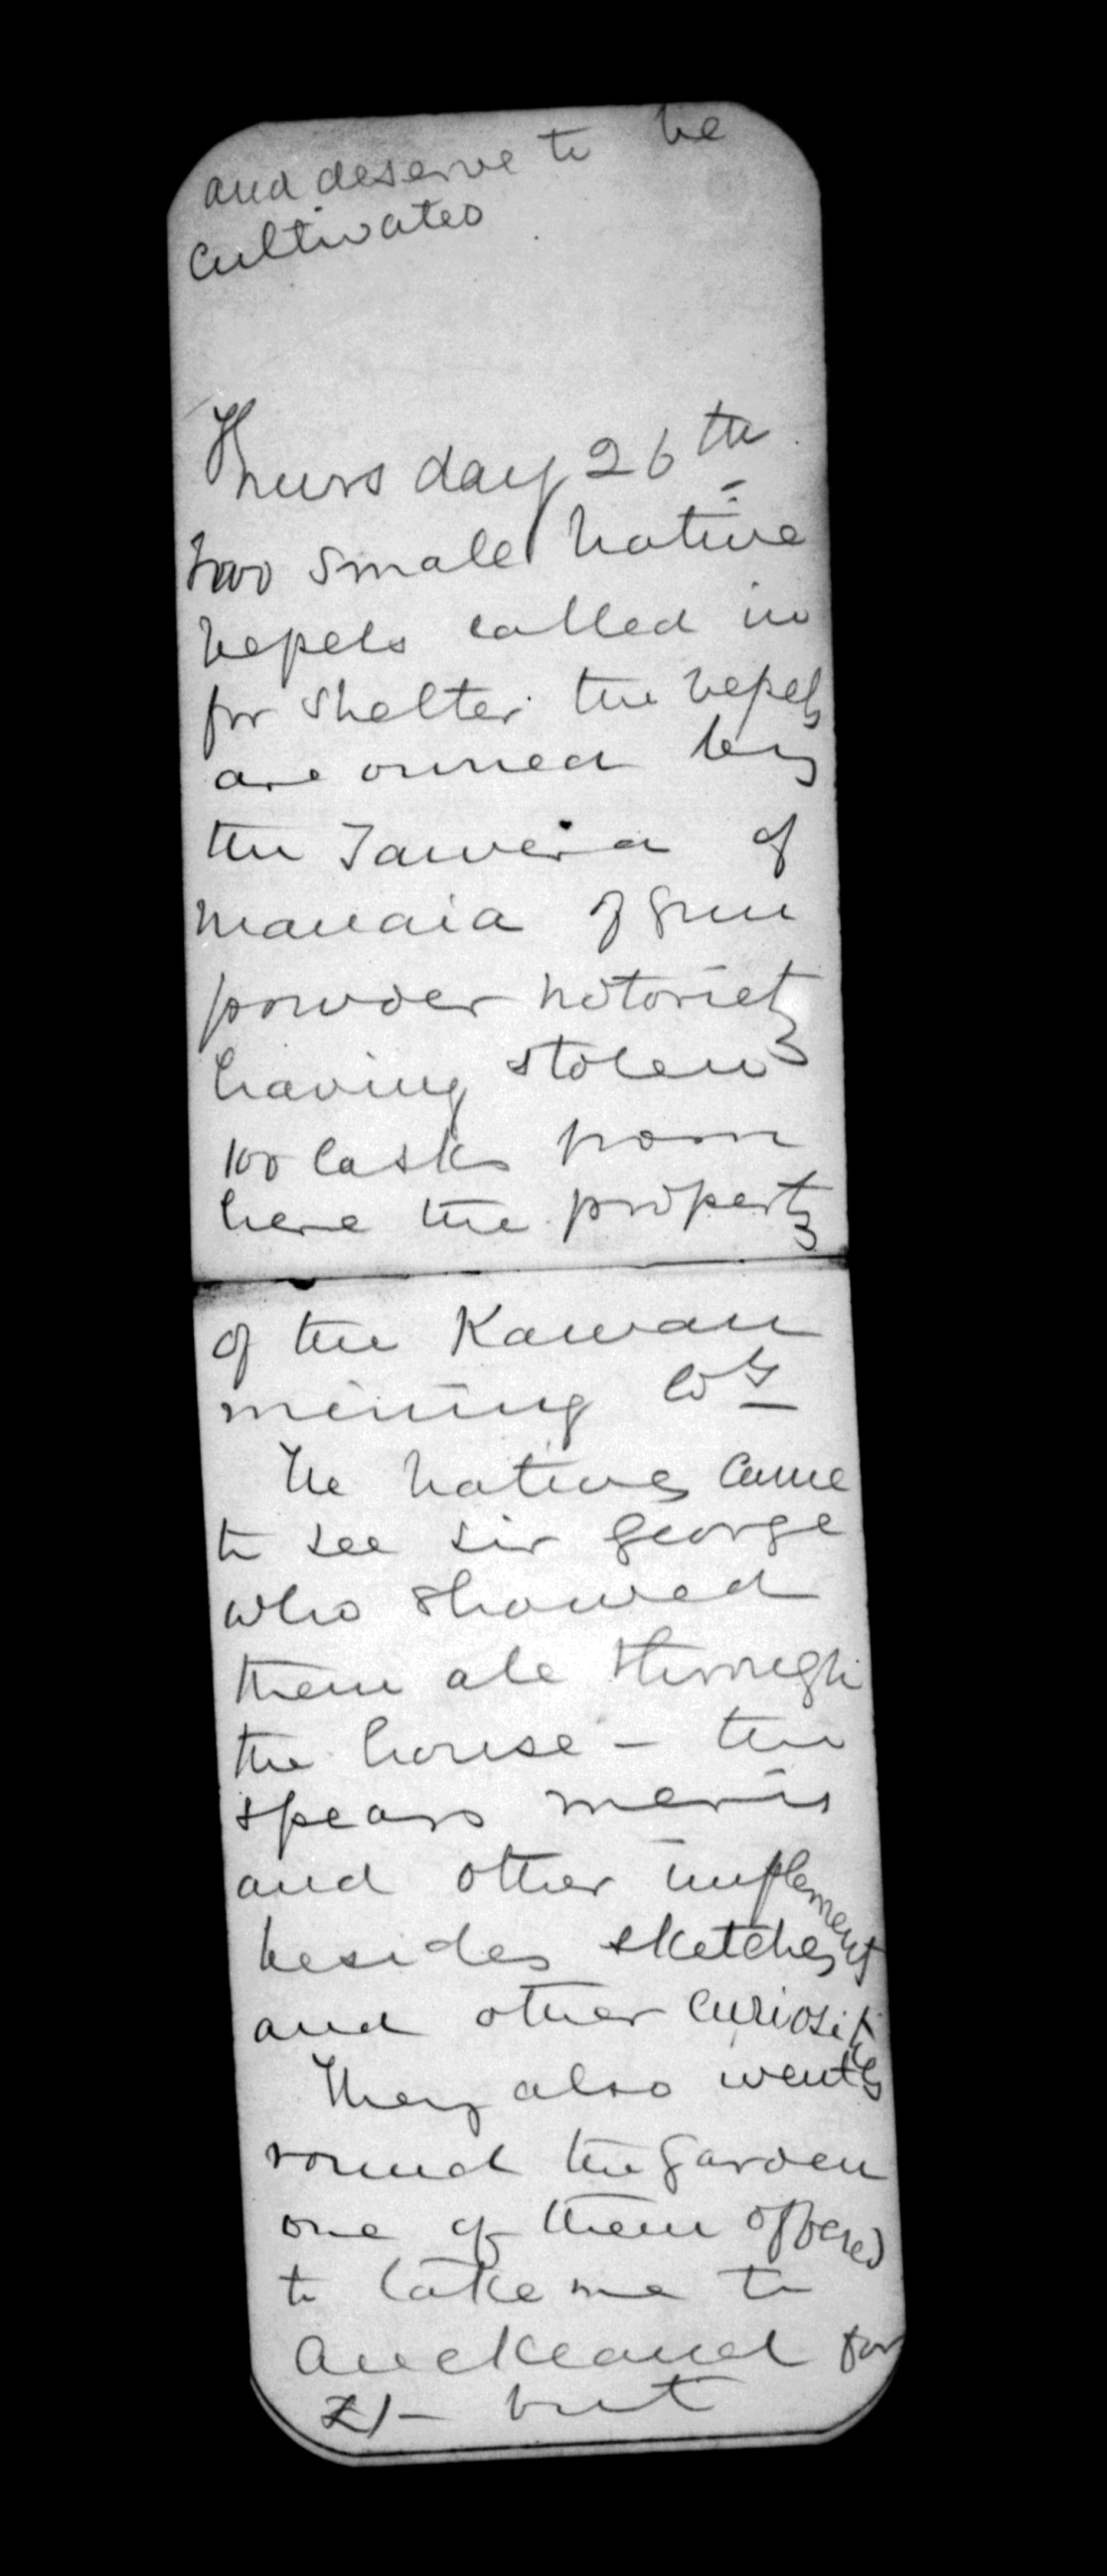 and deserve to be
cultivated
Thursday 26th
two small native
vessels called in
for shelter the vessels
are owned by
the Tawera of
Manaia of gun
powder notoriety
having stolen
100 casks from
here the property
of the Kawau
mining Coy
The natives came
to see Sir George
who showed
them all through
the house - the
spears meris
and other implements
besides sketches
and other curiosities
They also went
round the garden
one of them offered
to take me to
Auckland for
but